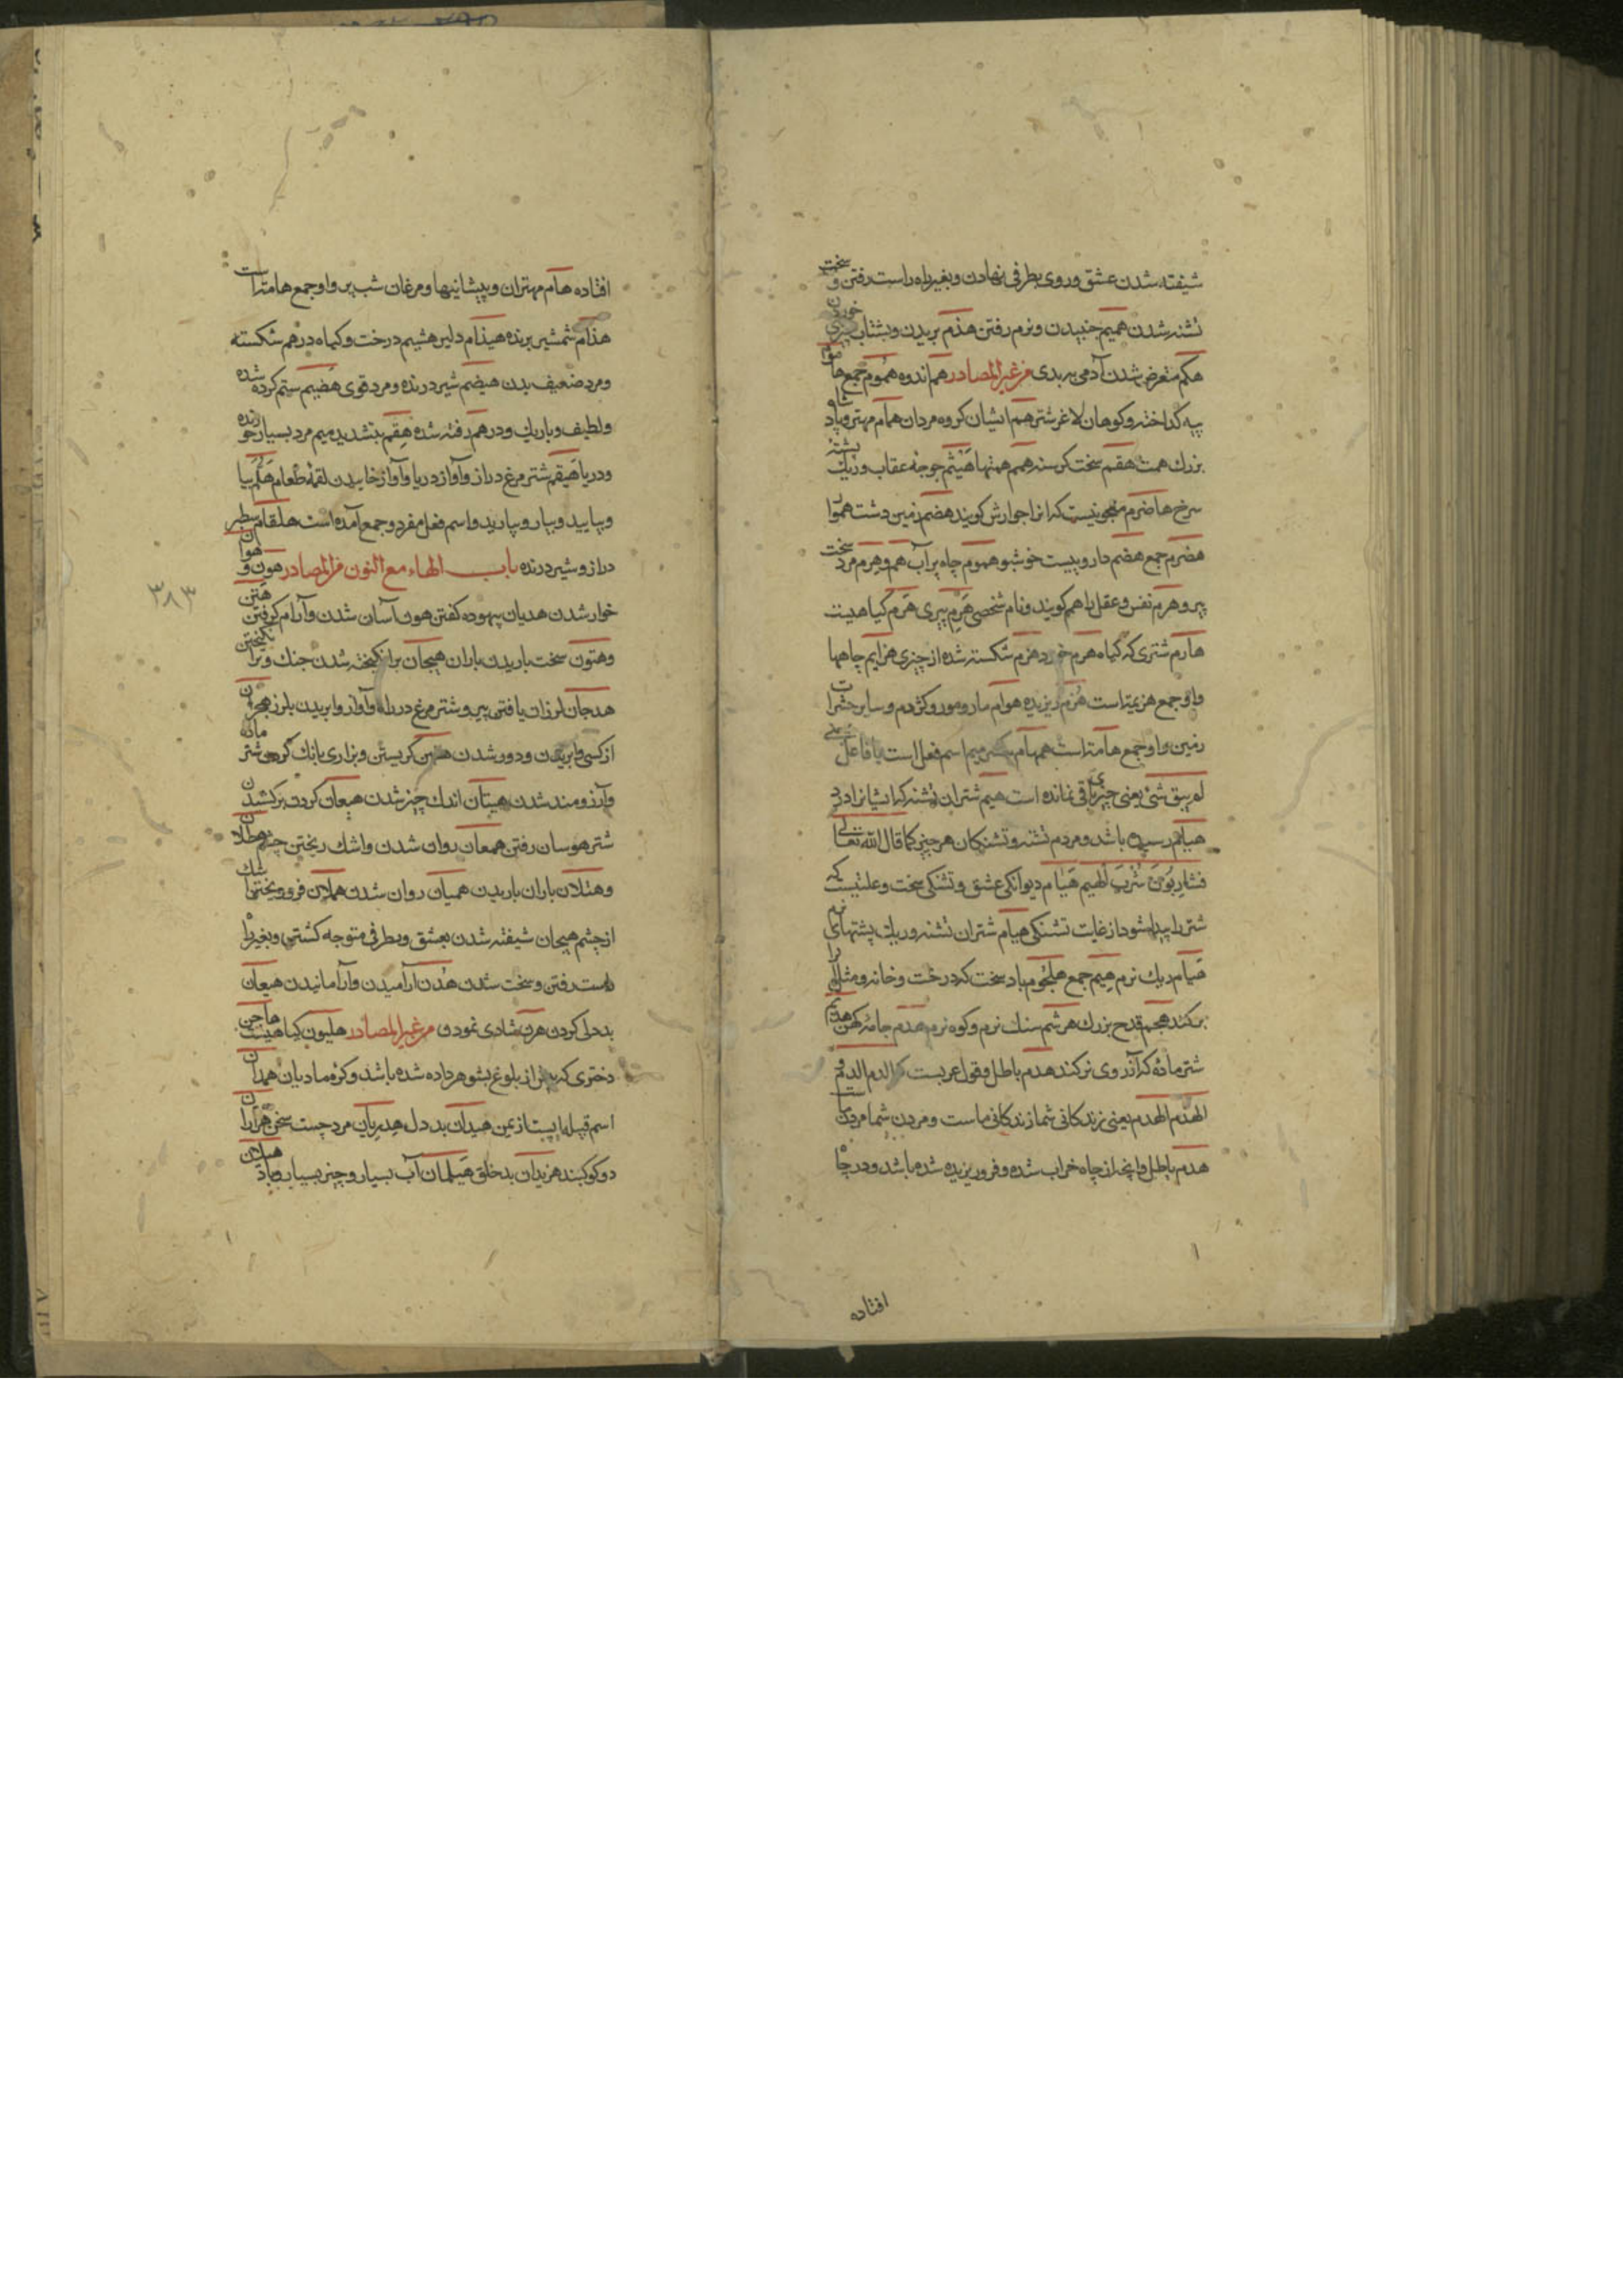 شیفته شدن عشق و روی بطرفی نهادن و بغیر راه راست رفتن و سخت
تشنه شدن همیم جنبیدن و نرم رفتن هذم بریدن و بشتاب چیزی خوردن
هکم متعرض شدن آدمی به بدی من غیر المصادر هم اندوه هموم جمع هاموم
پیه کداخته و کوهان لاغر شتر هم ایشان کروه مردان همام مهتر و پادشاه
بزرک همت هقم سخت کرسنه همم همتها هیثم جوجه عقاب و ریک پشته
سرخ هاضوم معجونیست که انرا جوارش کویند هضم زمین دشت هموار
هضوم جمع هضم داروییست خوشبو هموم چاه پر آب هم و هرم مرد سخت
پیر و هرم نفس و عقل را هم کویند و نام شخصی هرم پیری هرم کیاهیست
هارم شتری که کیاه هرم خورد هزم شکسته شده از چیزی هزایم چاهها
و او جمع هزیمة است هوام مار و مور و کژدم و سایر حشرات
زمین و او جمع هامة است همهام بکسر میم اسم فعل است یا فاعل یعنی
لم یبق شئ یعنی چیزی باقی نمانده است هیم شتران تشنه که ایشانرا درد
هیام رسیده باشد و مردم تشنه و تشنکان هر چیز کما قال الله تعالی
فشاربون شرب الهیم هیام دیوانکی عشق و تشنکی سخت و علتیست که
شتر را پیدا شود از غایت تشنکی هیام شتران تشنه و ریک پشتهای نرم
هیام ریک نرم هیم جمع هلجوم باد سخت که درخت و خانه و مثل آنرا
برکند هجم قدح بزرک هرشم سنک نرم و کوه نرم هدم جامه کهن هدیم
شتر ماده که آرزوی نر کند هدم باطل و قول عربست که الدم الدم و
الهدم الهدم یعنی زندکانی شما زندکانی ماست و مردن شما مردن ماست
هدم باطل و آنچه از چاه خراب شده و فرو ریزیده شده باشد و در چاه
افتاده
افتاده هام مهتران و پیشانیها و مرغان شب پر و او جمع هامة است
هذام شمشیر برنده هیذام دلیر هشیم درخت و کیاه درهم شکسته
و مرد ضعیف بدن هیضم شیر درنده و مرد قوی هضیم ستم کرده شده
و لطیف و باریک و درهم رفته شده هقم بتشدید میم مرد بسیار خورنده
و دریا هیقم شتر مرغ دراز و آواز دریا و آواز خاییدن لقمه طعام هلم بیا
و بیایید و بیار و بیارید و اسم فعل مفرد و جمع آمده است هلقام سطبر
دراز و شیر درنده باب الهاء مع النون من المصادر هون و هوان
خوار شدن هدیان بیهوده کفتن هون آسان شدن و آرام کرفتن هتن
و هتون سخت باریدن باران هیجان برانکیخته شدن جنک و برانکیختن
هدجان لرزان یافتی پیر و شتر مرغ در راه و آواز و ابریدن بلرز هجران
از کسی وابریدن و دور شدن هنین کریستن و بزاری بانک کردن شتر ماده
و آرزومند شدن هیتان اندک چیز شدن هیعان کردن برکشیدن
شتر هوسان رفتن همعان روان شدن و اشک ریختن چشم هطلان
و هتلان باران باریدن همیان روان شدن هملان فرو ریختن اشک
از چشم هیجان شیفته شدن بعشق و بطرفی متوجه کشتن و بغیر راه
راست رفتن و سخت شدن هدن آرامیدن و آرامانیدن هیعان
بددلی کردن هرن شادی نمودن من غیر المصادر هلیون کیاهیست هاجن
دختری که پیش از بلوغ بشوهر داده شده باشد و کره مادیان همدان
اسم قبیله ایست از یمن هیدان بددل هذریان مرد چست سخن هراران
دو کوکبند هزیدان بدخلق هیلمان آب بسیار و چیز بسیار و باد هیلان
٣٨٣